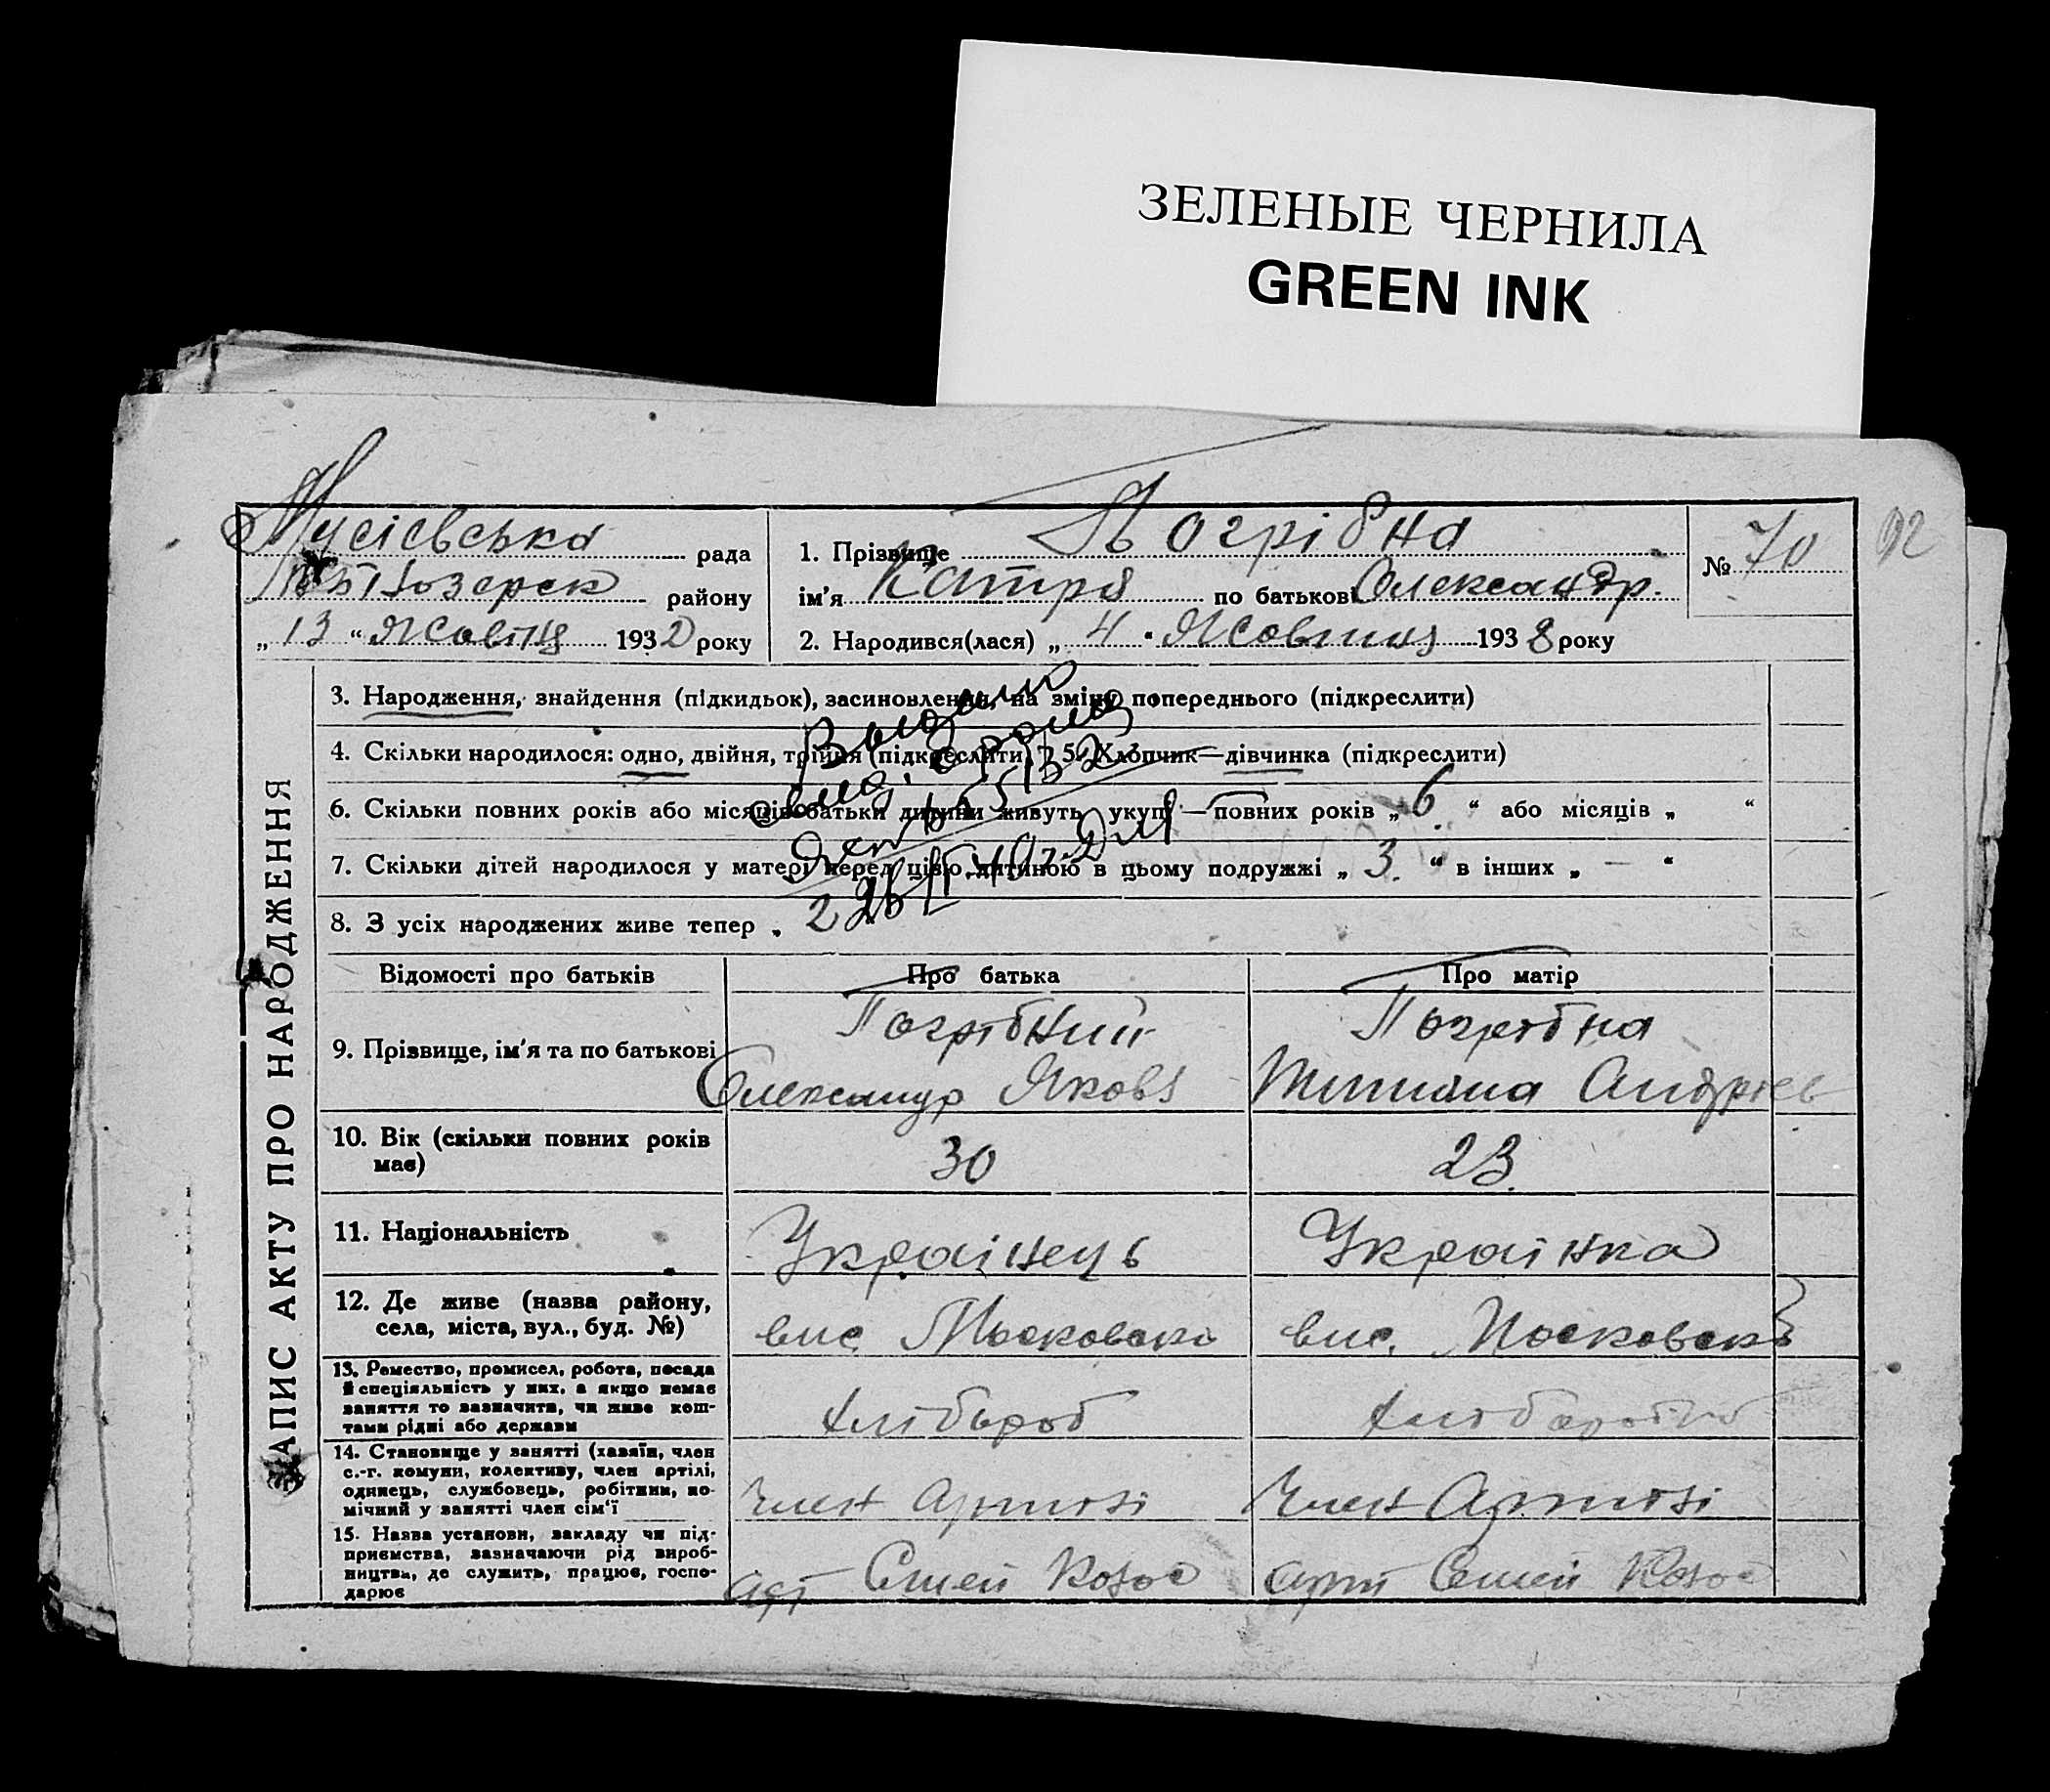 ЗЕЛЕНЫЕ ЧЕРНИЛА
GREEN INK
Мусієвська рада
району
„ 13 “ Жовтня 1932 року
1. Прізвище Погрібна
ім'я Катря по батькові Олександр.
2. Народився(лася) „ 4 “ Жовтня 1932 року
№ 70
92
ЗАПИС АКТУ ПРО НАРОДЖЕННЯ
3. Народження, знайдення (підкидьок), засиновлення, на зміну попереднього (підкреслити)
4. Скільки народилося: одно, двійня, трійня (підкреслити) 5. Хлопчик—дівчинка (підкреслити)
6. Скільки повних років або місяців батьки дитини живуть укупі — повних років „ 6 “ або місяців „ “
7. Скільки дітей народилося у матері перед цією дитиною в цьому подружжі „ 3. “ в інших „ — “
8. З усіх народжених живе тепер „ 2
Відомості про батьків Про батька Про матір
9. Прізвище, ім'я та по батькові
Погрібний
Олександр Яковл
Погрібна
Тетяна Андрієв
10. Вік (скільки повних років має) 30 23.
11. Національність Українець Українка
12. Де живе (назва району,
села, міста, вул., буд. №)
вис. Московськ
вис. Московськ
13. Ремество, промисел, робота, посада
й спеціяльність у них, а якщо немає
заняття то зазначити, чи живе кош-
тами рідні або держави
хлібороб
хлібороб
14. Становище у занятті (хазяїн, член
с.-г. комуни, колективу, член артілі,
одинець, службовець, робітник, по-
мічний у занятті член сім'ї
Член Артілі
Член Артілі
15. Назва установи, закладу чи під-
приємства, зазначаючи рід вироб-
ництва, де служить, працює, госпо-
дарює